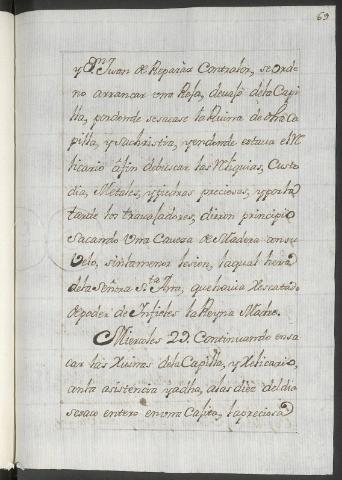 69
y Dn. Juan de Reparàz Contralor, se ordè-
no arrancar una Rexa, devajo de la Capi-
lla, por donde se sacase la Ruina de dha Ca-
pilla, y Sachristia, y en donde estava el Re-
licario à fin de buscar las Reliquias, Custo-
dia, Metales, y piedras preciosas, y por la
tarde los travajadores, dieron principio
sacando Una Caveza de Madera con su
Velo, sin la menor lesion, la qual hera
de la Señora Sta. Ana, que havia Rescatado
de poder de Infieles la Reyna Madre.
Miercoles 29. Continuando en sa-
car las Ruinas de la Capilla, y Relicario,
con la asistencia ya dha, a las diez del dia
se saco entero en una Cajita, la preciosa